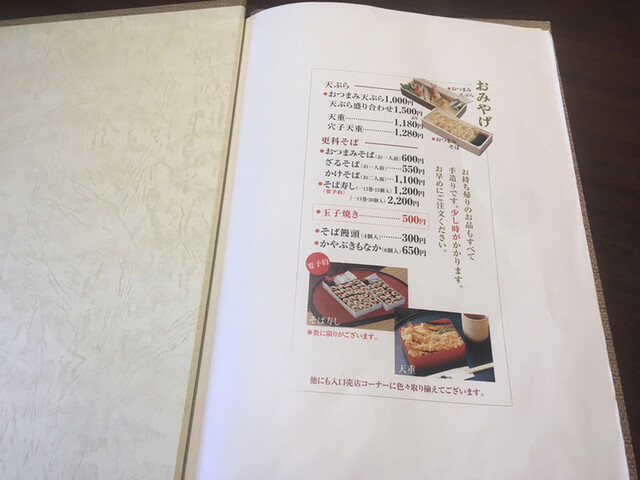 おみやげ
お持ち帰りのお品もすべて
手造りです。少し時がかかります。
お早めにご注文ください。
おつまみ
天ぷら
おつまみ
そば
天ぷら
おつまみ天ぷら1,000円
天ぷら盛り合わせ1,500円
天重 1,180円
穴子天重 1,280円
更科そば
おつまみそば(お一人前)600円
ざるそば(お一人前) 550円
かけそば(お二人前) 1,100円
そば寿し(一口巻・15個入) 1,200円
(要予約) (一口巻・30個入) 2,200円
玉子焼き 500円
そば饅頭(4個入) 300円
かやぶきもなか(6個入)650円
要予約
そば寿し
数に限りがございます。
天重
他にも入口売店コーナーに色々取り揃えてございます。